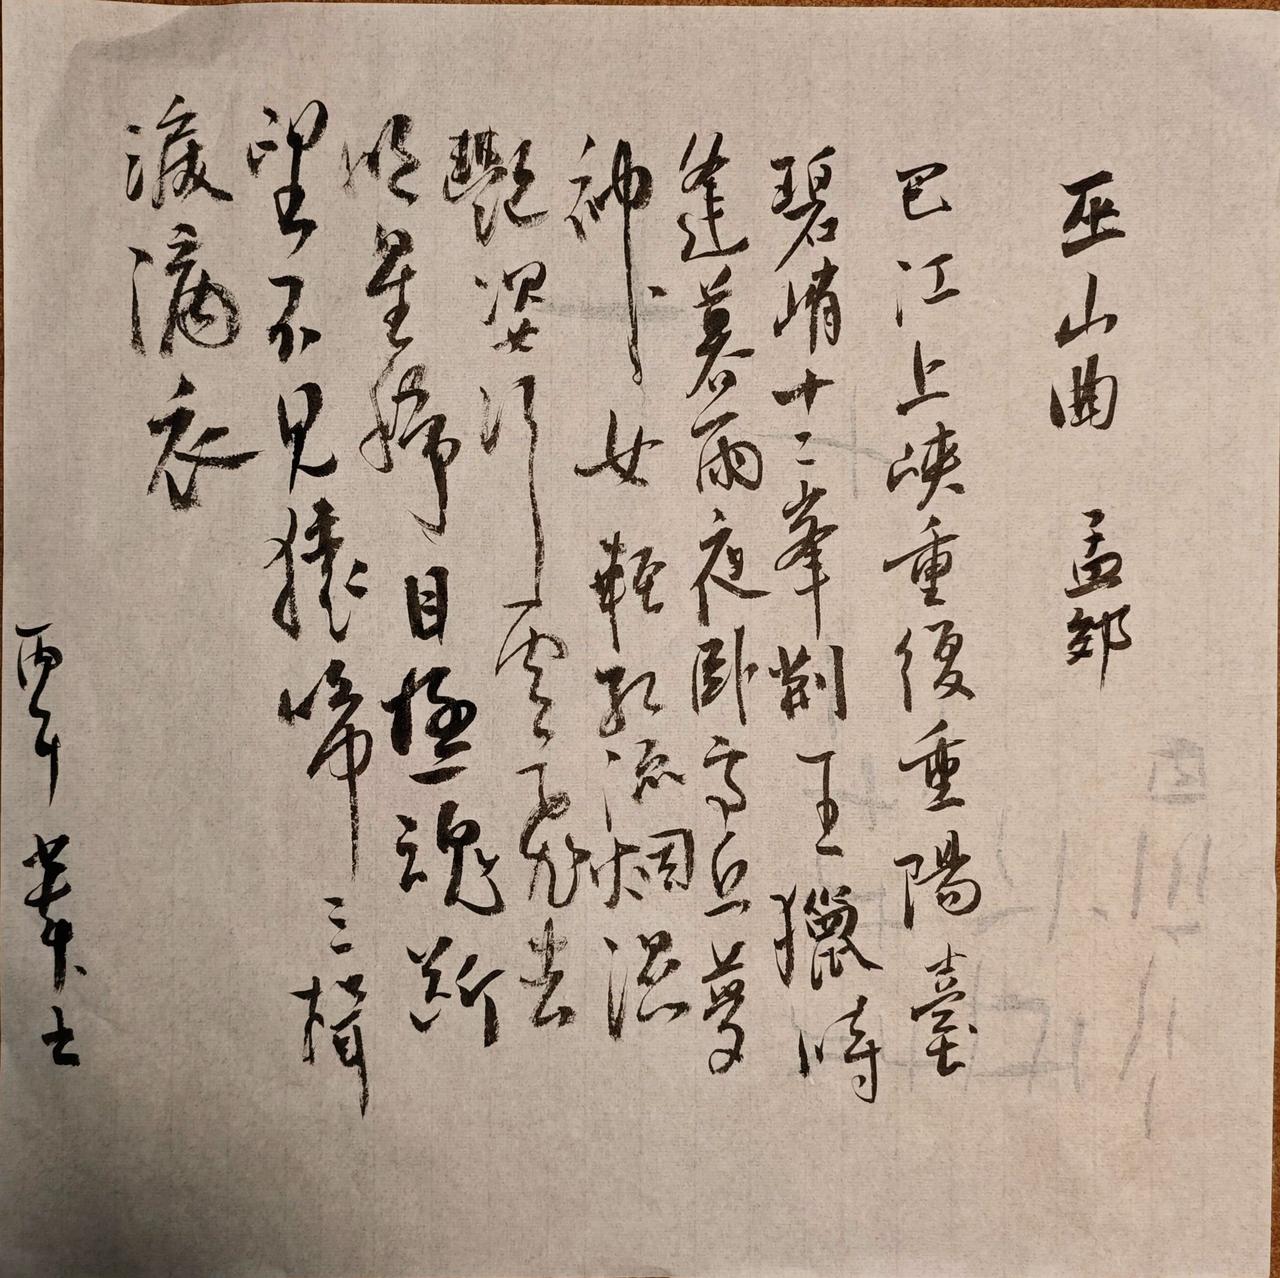 巫山曲 孟郊
巴江上峽重復重陽臺
碧峭十二峯荆王獵時
逢暮雨夜卧高丘夢
神女輕紅流烟濕
艷姿行雲飛去
明星稀目極魂斷
望不見猿啼三
淚滴衣
丙午